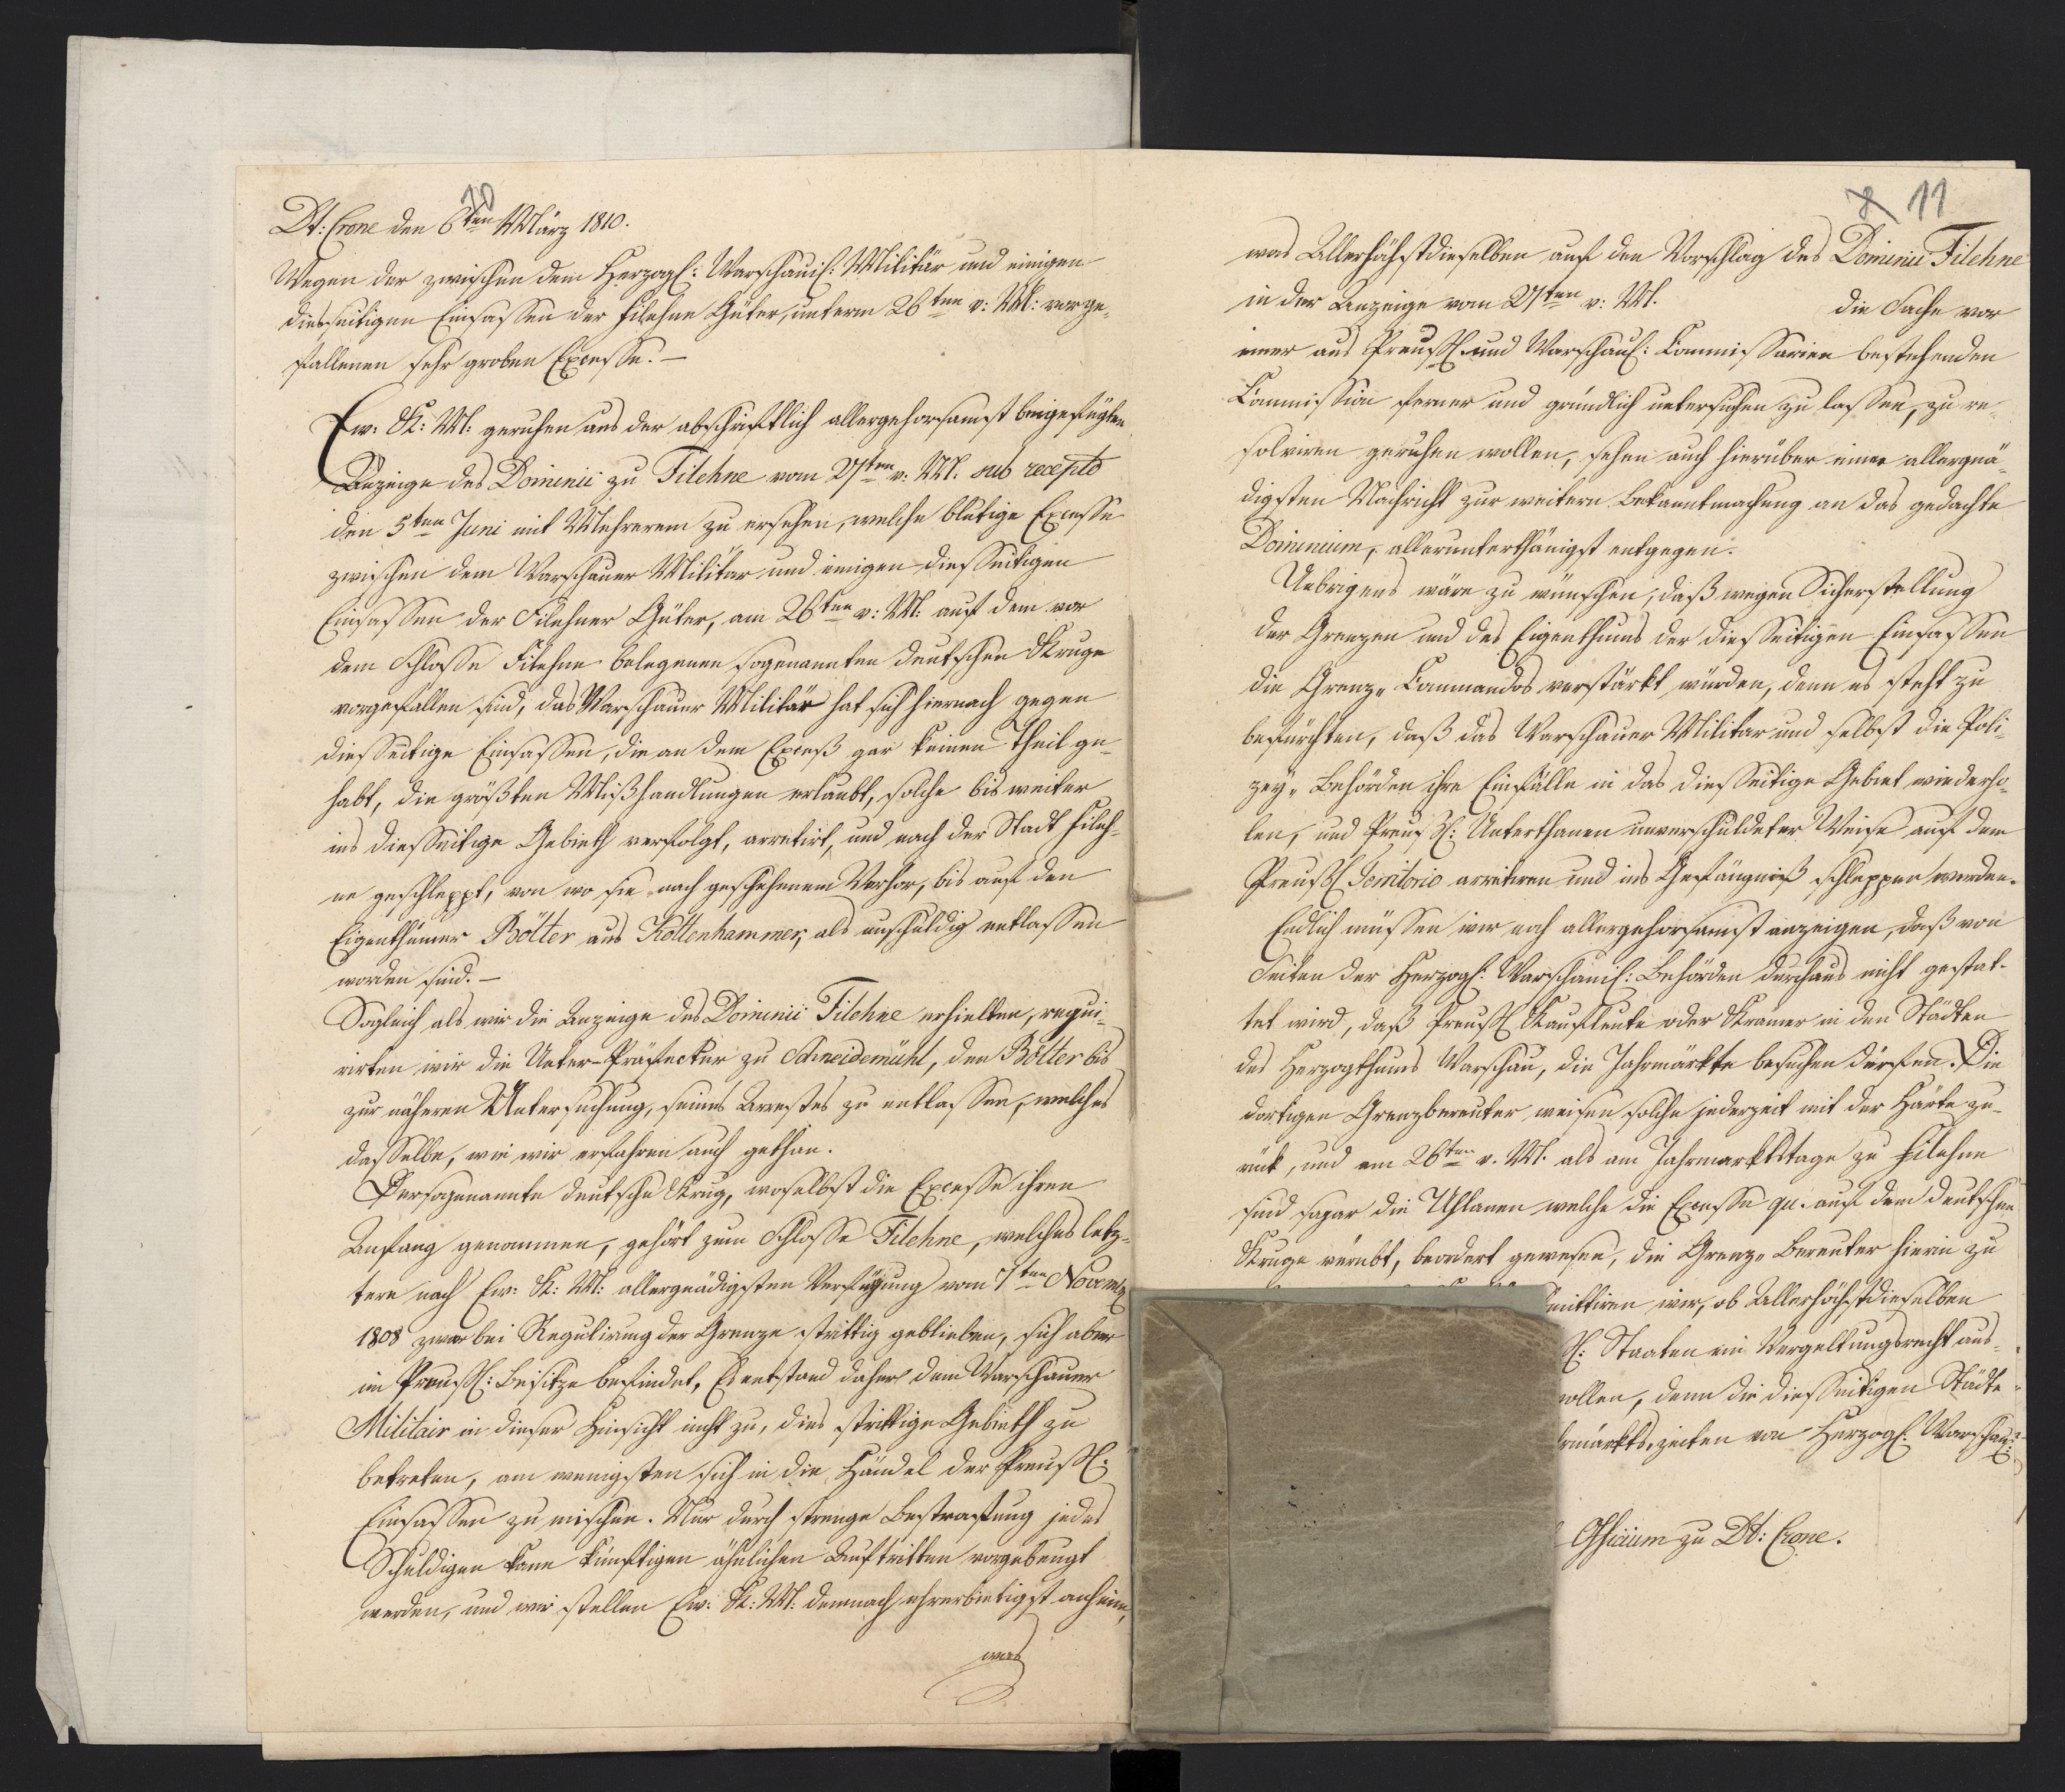 10
Dt: Crone den 6ten März 1810.
Wegen der zwischen dem Herzogl: Warschauisch: Militär und einigen
diesseitigen Einsassen der Filehne Güter, unterm 26ten v: M: vorge-
fallenen sehr groben Excesse. —
Ew: K: M: geruhen aus der abschriftlich allergehorsamst beigefügten
Anzeige des Dominii zu Filehne vom 27ten v: M. sub recepto
den 5ten Juni mit Mehrerem zu ersehen, welche blutige Excesse
zwischen dem Warschauer Militär und einigen diesseitigen
Einsassen der Filehner Güter, am 26ten v: M: auf dem vor
dem Schlosse Filehne belegenen sogenannten deutschen Kruge
vorgefallen sind, das Warschauer Militär hat sich hiernach gegen
diesseitige Einsassen, die an dem Exceß gar keinen Theil ge-
habt, die größten Mißhandlungen erlaubt, solche bis weiter
ins diesseitige Gebieth verfolgt, arretirt, und nach der Stadt Fileh-
ne geschleppt, von wo sie nach geschehenem Verhör, bis auf den
Eigenthümer Bölter aus Kottenhammer, als unschuldig entlassen
worden sind. —
Sogleich als wir die Anzeige des Dominii Filehne erhielten, requi-
rirten wir die Unter-Präfectur zu Schneidemühl, den Bölter bis
zur näheren Untersuchung, seines Arrestes zu entlassen, welches
dasselbe, wie wir erfahren auch gethan.
Der sogenannte deutsche Krug, woselbst die Excesse ihren
Anfang genommen, gehört zum Schlosse Filehne, welches letz-
tere nach Ew: K: M: allergnädigsten Verfügung vom 7ten Novem
1808 zwar bei Regulirung der Grenze strittig geblieben, sich aber
im Preuß: Besitze befindet, Es entstand daher dem Warschauer
Militair in dieser Hinsicht nicht zu, dies strittige Gebieth zu
betreten, am wenigsten sich in die Händel der Preuß:
Einsassen zu mischen. Nur durch strenge Bestrafung jedes
Schuldigen kann künftigen ähnlichen Auftritten vorgebeugt
werden, und wir stellen Ew: K: M: demnach ehrerbietigst anheim,
was
8 11
was Allerhöchstdieselben auf den Vorschlag des Dominii Filehne
in der Anzeige vom 27ten v: M. die Sache vor
einer aus Preuß. und Warschau: Commissarien bestehenden
Commission ferner und gründlich untersuchen zu lassen, zu re-
solviren geruhen wollen, sehen auch hierüber einer allergnä-
digsten Nachricht zur weitern Bekanntmachung an das gedachte
Dominium, allerunterthänigst entgegen.
Uebrigens wäre zu wünschen, daß wegen Sicherstellung
der Grenzen und des Eigenthums der diesseitigen Einsassen
die Grenz-Commandos verstärkt würden, denn es steht zu
befürchten, daß das Warschauer Militär und selbst die Poli-
zey-Behörden ihre Einfälle in das diesseitige Gebiet wiederho-
len, und Preuß: Unterthanen unverschuldeter Weise auf dem
Preuß Territorio arretiren und ins Gefängniß schleppen werden.
Endlich müssen wir noch allergehorsamst anzeigen, daß von
Seiten der Herzogl: Warschauisch: Behörden durchaus nicht gestat-
tet wird, daß Preuß Kaufleute oder Krämer in den Städten
des Herzogthums Warschau, die Jahrmärkte besuchen dürfen. Die
dortigen Grenzbereuter weisen solche jederzeit mit der Härte zu-
rück, und am 26ten v. M. als am Jahrmarktstage zu Filehne
sind sogar die Uhlanen welche die Excesse qu. auf dem deutschen
Kruge verübt, beordert gewesen, die Grenz-Bereuter hierin zu
mittiren wir, ob Allerhöchstdieselben
Staaten ein Vergeltungsrecht aus-
wollen, denn die diesseitigen Städte
rmärkts-zeiten von Herzogl: Warschau:
Officium zu Dt: Crone.